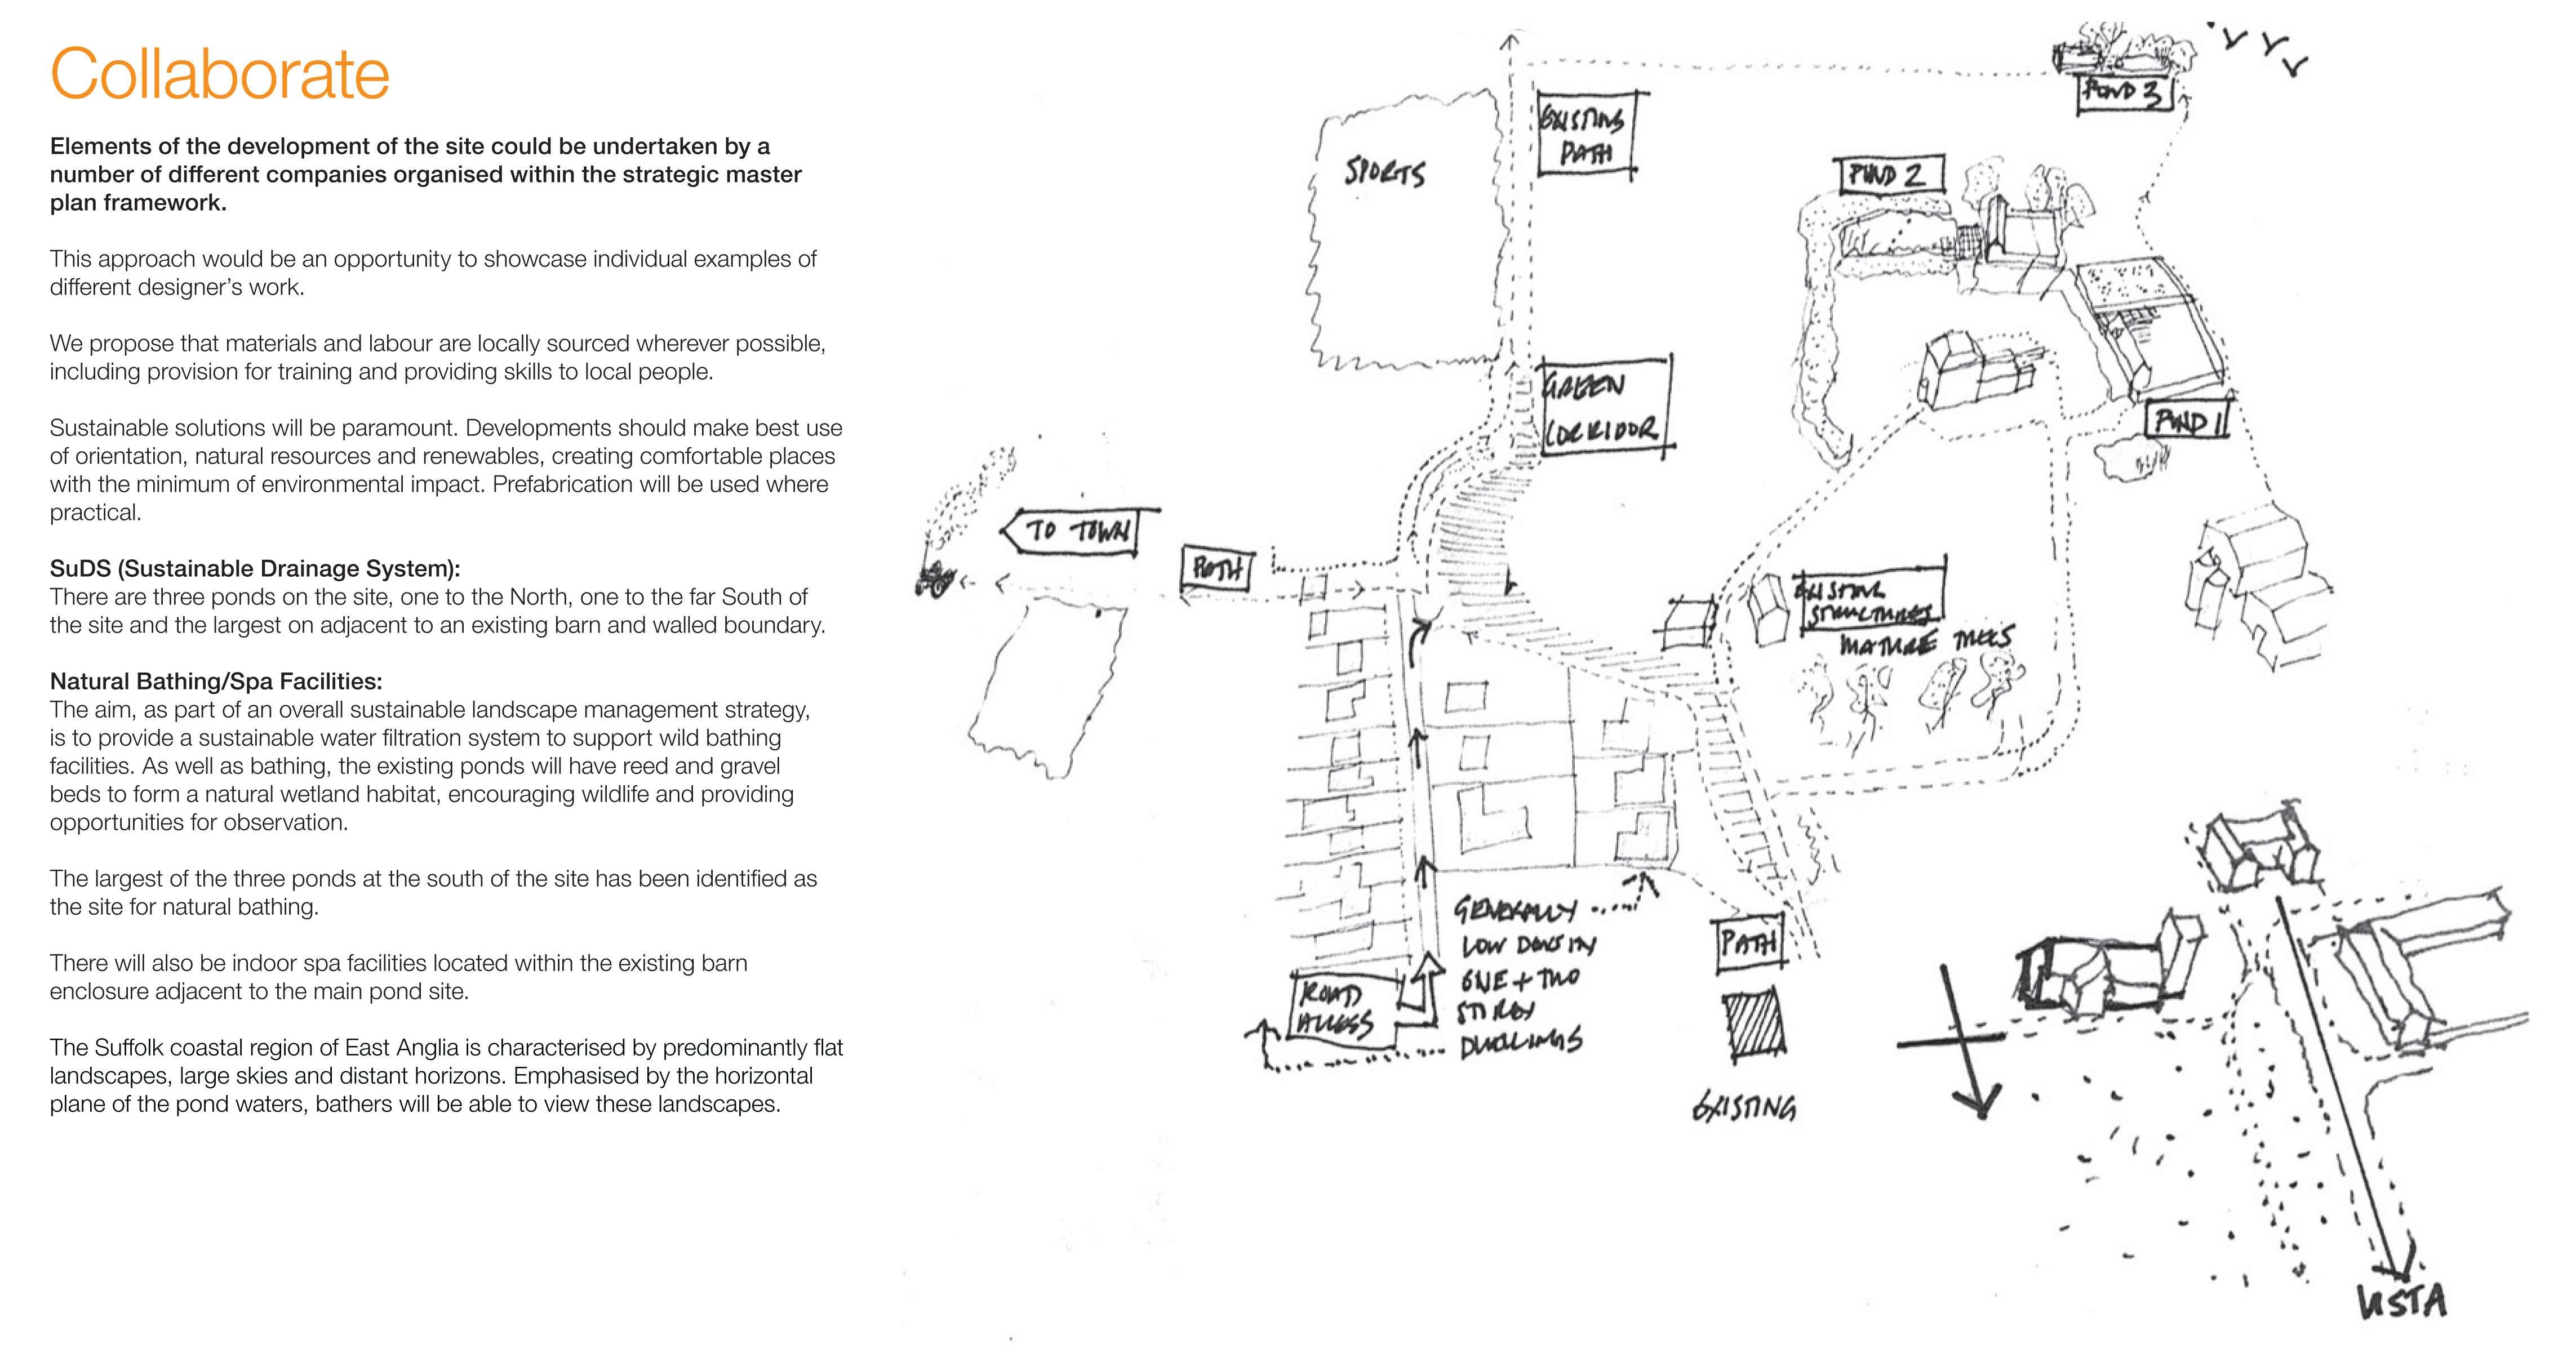 Collaborate
Elements of the development of the site could be undertaken by a
number of different companies organised within the strategic master
plan framework.
This approach would be an opportunity to showcase individual examples of
different designer’s work.
We propose that materials and labour are locally sourced wherever possible,
including provision for training and providing skills to local people.
Sustainable solutions will be paramount. Developments should make best use
of orientation, natural resources and renewables, creating comfortable places
with the minimum of environmental impact. Prefabrication will be used where
practical.
SuDS (Sustainable Drainage System):
There are three ponds on the site, one to the North, one to the far South of
the site and the largest on adjacent to an existing barn and walled boundary.
Natural Bathing/Spa Facilities:
The aim, as part of an overall sustainable landscape management strategy,
is to provide a sustainable water filtration system to support wild bathing
facilities. As well as bathing, the existing ponds will have reed and gravel
beds to form a natural wetland habitat, encouraging wildlife and providing
opportunities for observation.
The largest of the three ponds at the south of the site has been identified as
the site for natural bathing.
There will also be indoor spa facilities located within the existing barn
enclosure adjacent to the main pond site.
The Suffolk coastal region of East Anglia is characterised by predominantly flat
landscapes, large skies and distant horizons. Emphasised by the horizontal
plane of the pond waters, bathers will be able to view these landscapes.
POND 3
EXISTING
PATH
SPORTS
POND 2
GREEN
CORRIDOR
POND 1
TO TOWN
PATH
EXISTING
STRUCTURES
MATURE TREES
GENERALLY
LOW DENSITY
ONE + TWO
STOREY
DWELLINGS
PATH
ROAD
ACCESS
EXISTING
VISTA